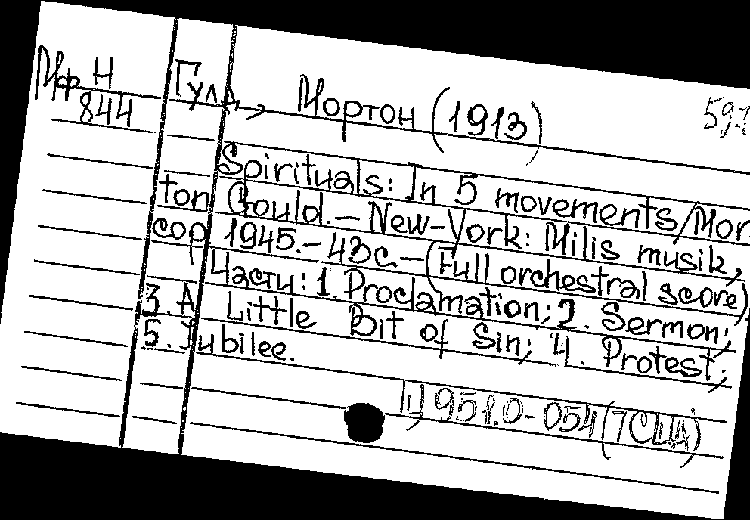 Мф Н Гулд, Мортон (1913) 597
844
Spirituals: In 5 movements/Mor
ton Gould. – New-York: Milis musik,
cop 1945. – 43с. – (Full orchestral score)
Части: 1. Proclamation; 2. Sermon;
3. A Little Bit of Sin; 4. Protest;
5. Jubilee.
Щ 951.0-054(7США)